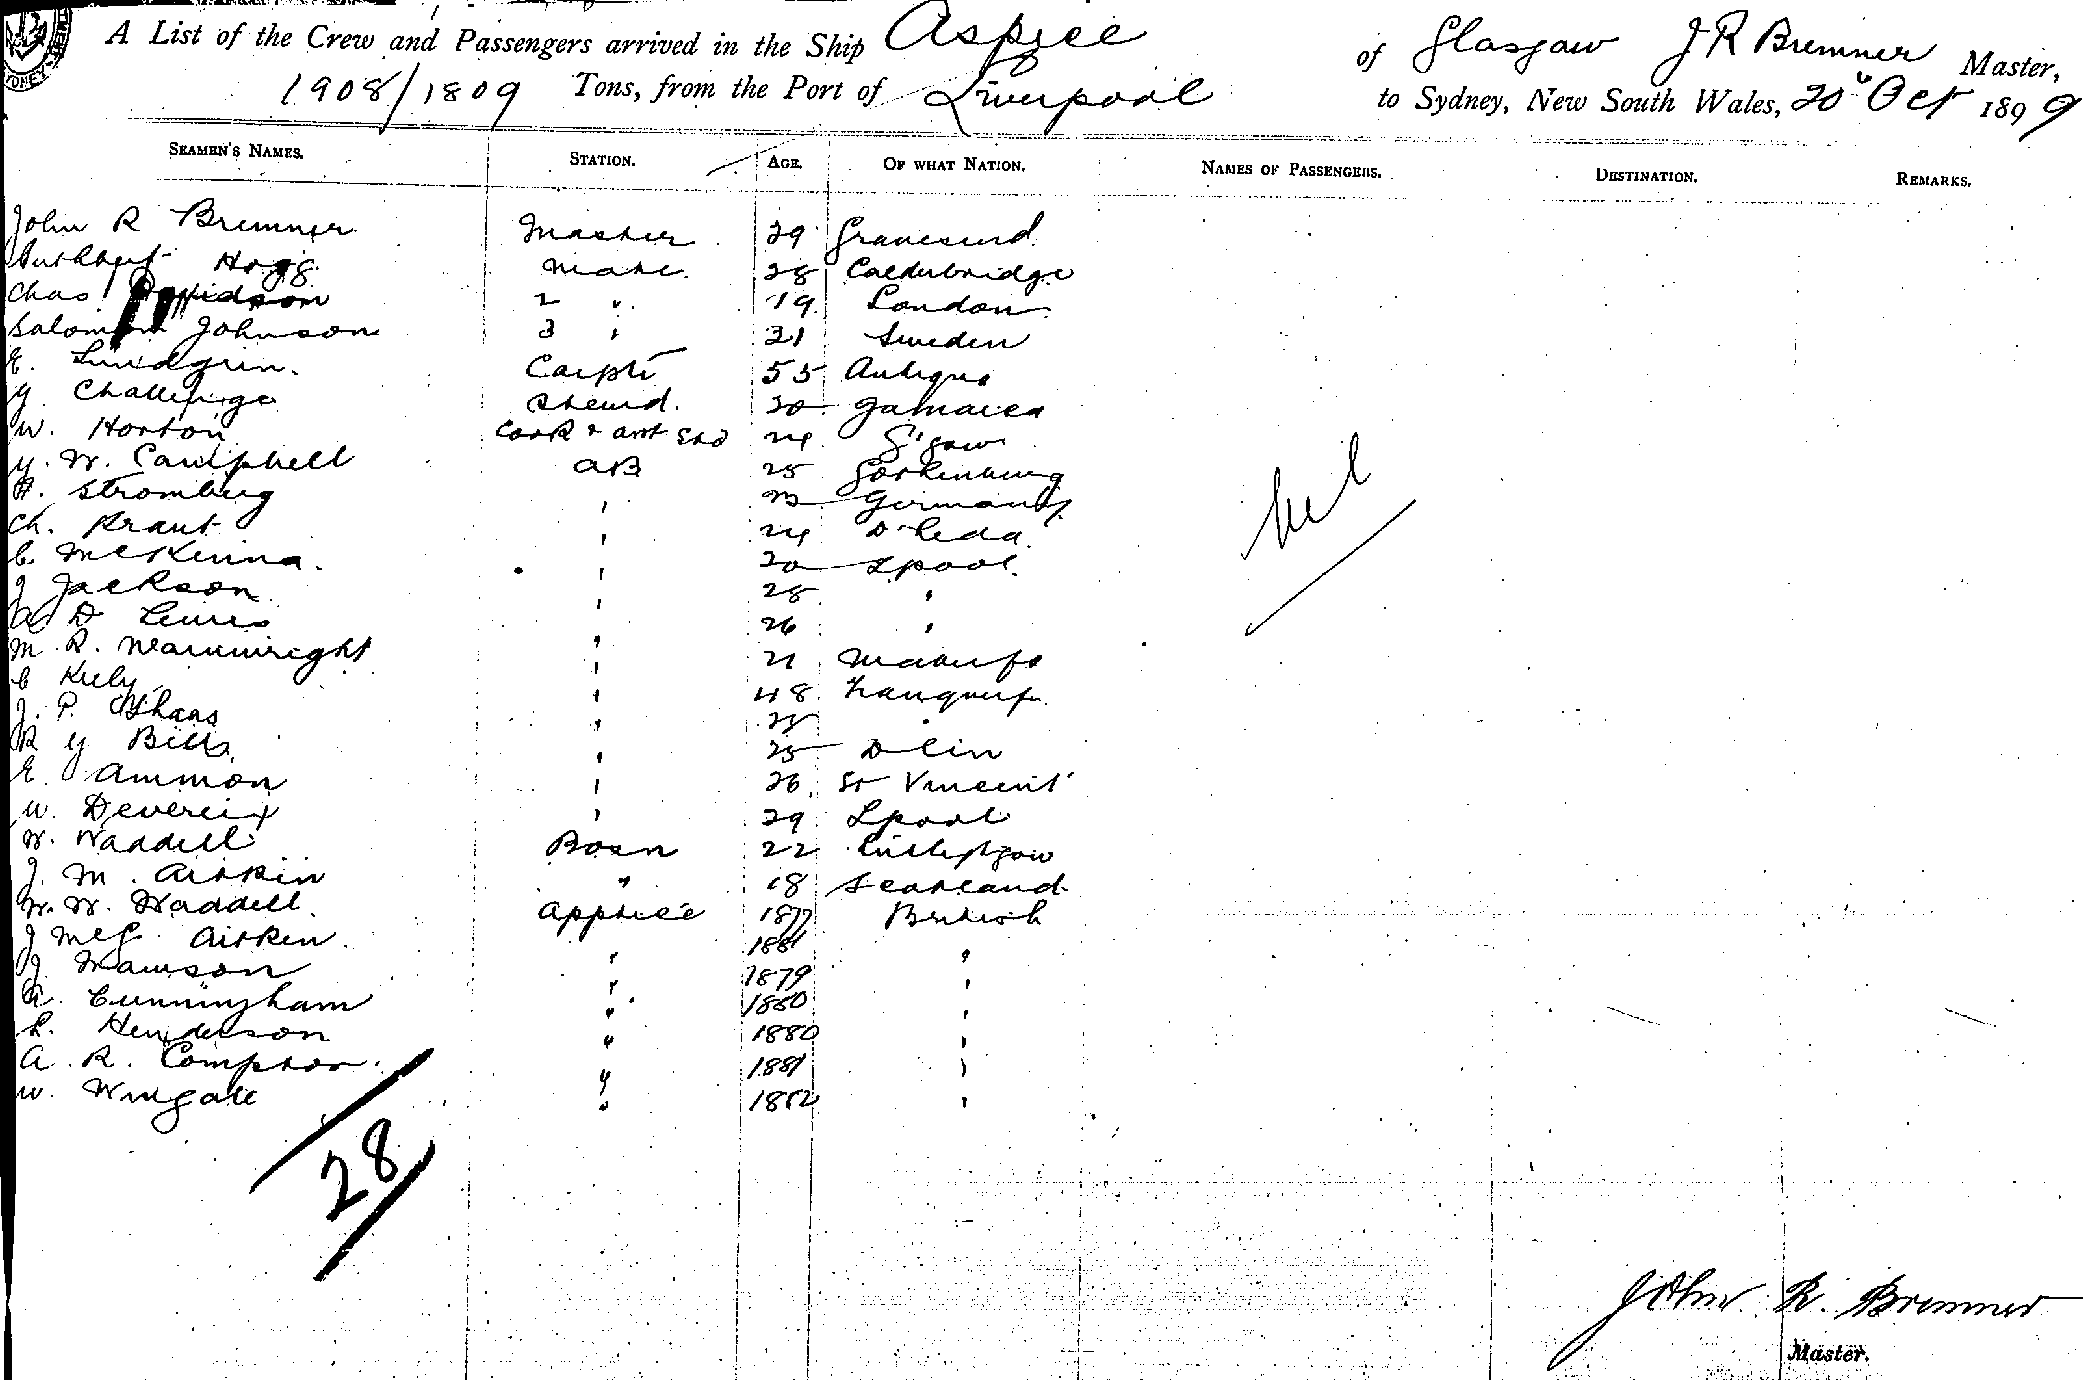 A List of the Crew and Passengers arrived in the Ship Aspice of Glasgow J R Bremner Master,
1908/1809 Tons, from the Port of Liverpool to Sydney, New South Wales, 20 Oct 1899
SEAMEN'S NAMES. STATION. AGE. OF WHAT NATION. NAMES OF PASSENGERS. DESTINATION. REMARKS.
John R Bremner Master 29 Gravesend
Hogg Mate 28 Calderbridge
Chas Davidson 2 " 19 London
Salomon Johnson 3 " 31 Sweden
E. Lindgrin. Carptr 55 Antigua
Challenge Steward. 20 Jamaica
W. Horton Cook & asst Std 24 G'gow
W. Campbell AB 25 Gothenburg
Stromberg " Germany
Ch. Kraut " 24 D'heda
C. McKenna. " 20 Lpool.
J Jackson " 28 "
A D Lewis " 26 "
M. R. Wainwright " 21
C Kiely " 48
J. P. "
R Bills " 25 Dlin
E. Ammon " 26 St Vincent
W. Devereix " 29 Lpool
W. Waddell Bosn 22 Linlithgow
J. M. Aitkin " 18 Scotland
W. W. Waddell. Apptice 1877 British
J McG Aitken. " 1881 "
J Mawson " 1879 "
A. Cunningham " 1880 "
R. Henderson " 1880 "
A. R. Compton. " 1881 "
W. Wingate " 1882 "
Nil
28
John R. Bremner
Master.